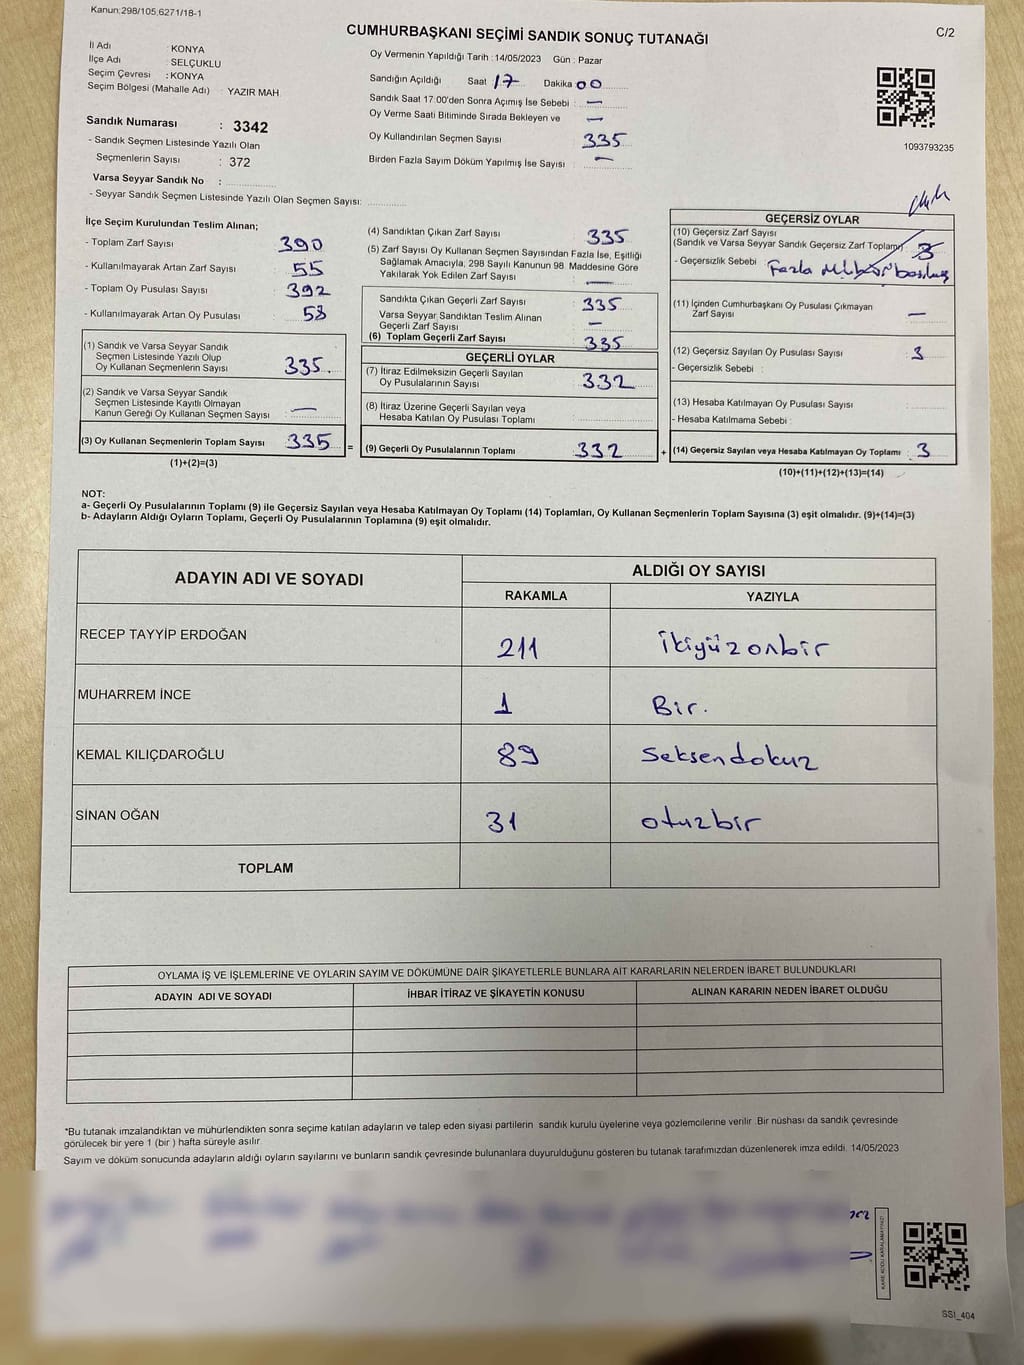 Kanun:298/105,6271/18-1
CUMHURBAŞKANI SEÇİMİ SANDIK SONUÇ TUTANAĞI
C/2
İl Adı : KONYA
İlçe Adı : SELÇUKLU
Seçim Çevresi : KONYA
Seçim Bölgesi (Mahalle Adı) : YAZIR MAH.
Sandık Numarası : 3342
- Sandık Seçmen Listesinde Yazılı Olan
Seçmenlerin Sayısı : 372
Varsa Seyyar Sandık No :
- Seyyar Sandık Seçmen Listesinde Yazılı Olan Seçmen Sayısı:
Oy Vermenin Yapıldığı Tarih : 14/05/2023 Gün : Pazar
Sandığın Açıldığı Saat 17 Dakika 00
Sandık Saat 17:00'den Sonra Açımış İse Sebebi : —
Oy Verme Saati Bitiminde Sırada Bekleyen ve —
Oy Kullandırılan Seçmen Sayısı 335
Birden Fazla Sayım Döküm Yapılmış İse Sayısı : —
1093793235
İlçe Seçim Kurulundan Teslim Alınan;
- Toplam Zarf Sayısı 390
- Kullanılmayarak Artan Zarf Sayısı 55
- Toplam Oy Pusulası Sayısı 392
- Kullanılmayarak Artan Oy Pusulası 58
(1) Sandık ve Varsa Seyyar Sandık
Seçmen Listesinde Yazılı Olup
Oy Kullanan Seçmenlerin Sayısı 335
(2) Sandık ve Varsa Seyyar Sandık
Seçmen Listesinde Kayıtlı Olmayan
Kanun Gereği Oy Kullanan Seçmen Sayısı : —
(3) Oy Kullanan Seçmenlerin Toplam Sayısı 335 =
(1)+(2)=(3)
(4) Sandıktan Çıkan Zarf Sayısı 335
(5) Zarf Sayısı Oy Kullanan Seçmen Sayısından Fazla İse, Eşitliği
Sağlamak Amacıyla, 298 Sayılı Kanunun 98 Maddesine Göre
Yakılarak Yok Edilen Zarf Sayısı —
Sandıkta Çıkan Geçerli Zarf Sayısı 335
Varsa Seyyar Sandıktan Teslim Alınan
Geçerli Zarf Sayısı —
(6) Toplam Geçerli Zarf Sayısı 335
GEÇERLİ OYLAR
(7) İtiraz Edilmeksizin Geçerli Sayılan
Oy Pusulalarının Sayısı 332
(8) İtiraz Üzerine Geçerli Sayılan veya
Hesaba Katılan Oy Pusulası Toplamı
(9) Geçerli Oy Pusulalarının Toplamı 332 +
GEÇERSİZ OYLAR
(10) Geçersiz Zarf Sayısı
(Sandık ve Varsa Seyyar Sandık Geçersiz Zarf Toplamı) 3
- Geçersizlik Sebebi : Fazla Mühür basılmış
(11) İçinden Cumhurbaşkanı Oy Pusulası Çıkmayan
Zarf Sayısı —
(12) Geçersiz Sayılan Oy Pusulası Sayısı 3
- Geçersizlik Sebebi :
(13) Hesaba Katılmayan Oy Pusulası Sayısı
- Hesaba Katılmama Sebebi :
(14) Geçersiz Sayılan veya Hesaba Katılmayan Oy Toplamı : 3
(10)+(11)+(12)+(13)=(14)
NOT:
a- Geçerli Oy Pusulalarının Toplamı (9) ile Geçersiz Sayılan veya Hesaba Katılmayan Oy Toplamı (14) Toplamları, Oy Kullanan Seçmenlerin Toplam Sayısına (3) eşit olmalıdır. (9)+(14)=(3)
b- Adayların Aldığı Oyların Toplamı, Geçerli Oy Pusulalarının Toplamına (9) eşit olmalıdır.
ADAYIN ADI VE SOYADI
ALDIĞI OY SAYISI
RAKAMLA YAZIYLA
RECEP TAYYİP ERDOĞAN 211 İkiyüzonbir
MUHARREM İNCE 1 Bir.
KEMAL KILIÇDAROĞLU 89 Seksendokuz
SİNAN OĞAN 31 otuzbir
TOPLAM
OYLAMA İŞ VE İŞLEMLERİNE VE OYLARIN SAYIM VE DÖKÜMÜNE DAİR ŞİKAYETLERLE BUNLARA AİT KARARLARIN NELERDEN İBARET BULUNDUKLARI
ADAYIN ADI VE SOYADI İHBAR İTİRAZ VE ŞİKAYETİN KONUSU ALINAN KARARIN NEDEN İBARET OLDUĞU
*Bu tutanak imzalandıktan ve mühürlendikten sonra seçime katılan adayların ve talep eden siyasi partilerin sandık kurulu üyelerine veya gözlemcilerine verilir. Bir nüshası da sandık çevresinde
görülecek bir yere 1 (bir ) hafta süreyle asılır.
Sayım ve döküm sonucunda adayların aldığı oyların sayılarını ve bunların sandık çevresinde bulunanlara duyurulduğunu gösteren bu tutanak tarafımızdan düzenlenerek imza edildi. 14/05/2023
KARE KODU KARALAMAYINIZ!
SSI_404